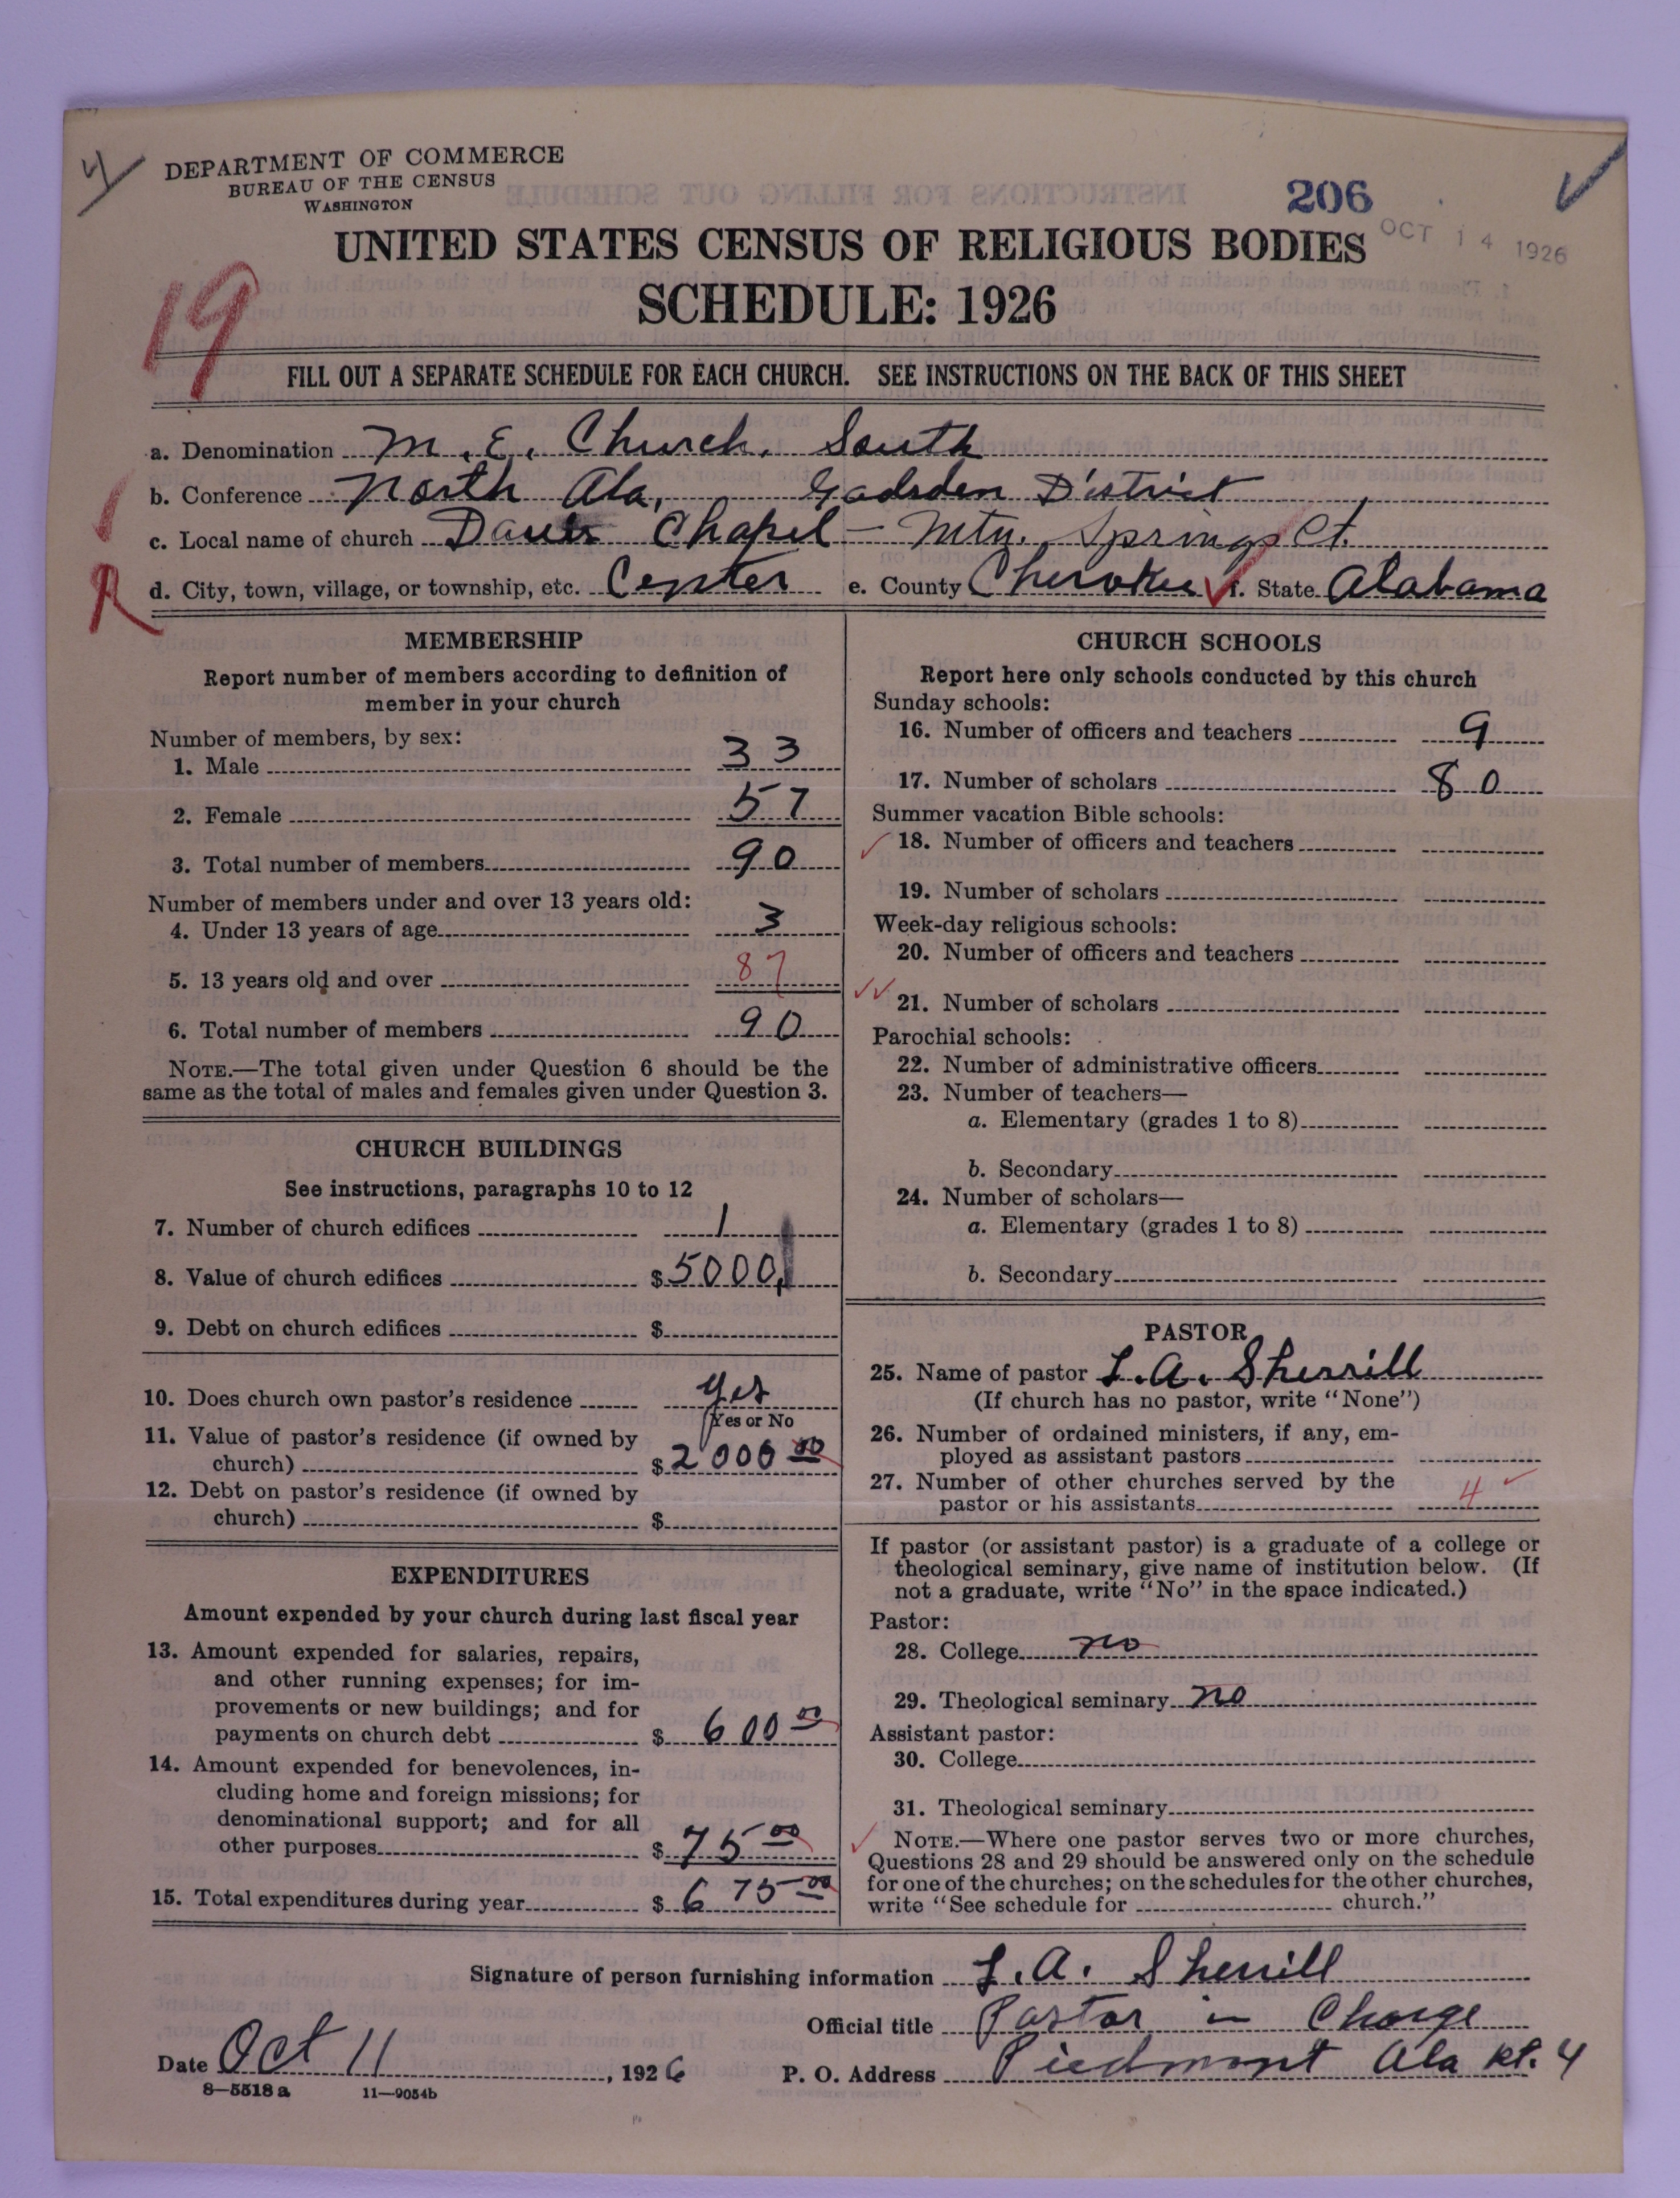 DEPARTMENT OF COMMERCE
BUREAU OF THE CENSUS
WASHINGTON
206
OCT 14 1926
UNITED STATES CENSUS OF RELIGIOUS BODIES
SCHEDULE: 1926
19
FILL OUT A SEPARATE SCHEDULE FOR EACH CHURCH. SEE INSTRUCTIONS ON THE BACK OF THIS SHEET
a. Denomination M. E. Church, South
b. Conference North Ala, Gadsden District
c. Local name of church Chapel – Mtn. Springs Ct.
R
d. City, town, village, or township, etc. Center e. County Cherokee f. State Alabama
MEMBERSHIP
Report number of members according to definition of
member in your church
Number of members, by sex:
1. Male 33
2. Female 57
3. Total number of members 90
Number of members under and over 13 years old:
4. Under 13 years of age 3
5. 13 years old and over 87
6. Total number of members 90
NOTE.—The total given under Question 6 should be the
same as the total of males and females given under Question 3.
CHURCH BUILDINGS
See instructions, paragraphs 10 to 12
7. Number of church edifices 1
8. Value of church edifices $5000
9. Debt on church edifices $
10. Does church own pastor's residence yes
(Yes or No
11. Value of pastor's residence (if owned by
church) $2000 00
12. Debt on pastor's residence (if owned by
church) $
EXPENDITURES
Amount expended by your church during last fiscal year
13. Amount expended for salaries, repairs,
and other running expenses; for im-
provements or new buildings; and for
payments on church debt $ 600 00
14. Amount expended for benevolences, in-
cluding home and foreign missions; for
denominational support; and for all
other purposes $ 75 00
15. Total expenditures during year $ 675 00
CHURCH SCHOOLS
Report here only schools conducted by this church
Sunday schools:
16. Number of officers and teachers 9
17. Number of scholars 80
Summer vacation Bible schools:
18. Number of officers and teachers
19. Number of scholars
Week-day religious schools:
20. Number of officers and teachers
21. Number of scholars
Parochial schools:
22. Number of administrative officers
23. Number of teachers—
a. Elementary (grades 1 to 8)
b. Secondary
24. Number of scholars—
a. Elementary (grades 1 to 8)
b. Secondary
PASTOR
25. Name of pastor L. A. Sherrill
(If church has no pastor, write "None")
26. Number of ordained ministers, if any, em-
ployed as assistant pastors
27. Number of other churches served by the
pastor or his assistants 4
If pastor (or assistant pastor) is a graduate of a college or
theological seminary, give name of institution below. (If
not a graduate, write "No" in the space indicated.)
Pastor:
28. College no
29. Theological seminary no
Assistant pastor:
30. College
31. Theological seminary
NOTE.—Where one pastor serves two or more churches,
Questions 28 and 29 should be answered only on the schedule
for one of the churches; on the schedules for the other churches,
write "See schedule for church."
Signature of person furnishing information L. A. Sherrill
Official title Pastor in Charge
Date Oct 11, 1926 P. O. Address Piedmont Ala Rt. 4
8—5518 a 11—9054b